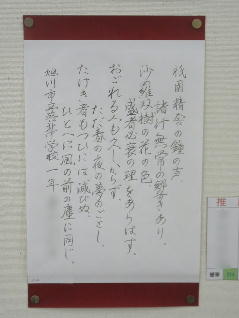 祇園精舎の鐘の声
諸行無常の響きあり。
沙羅双樹の花の色
盛者必衰の理をあらはす。
おごれる人も久しからず、
ただ春の夜の夢のごとし。
たけき者もつひには滅びぬ、
ひとへに風の前の塵に同じ。
旭川市立 学校一年
推